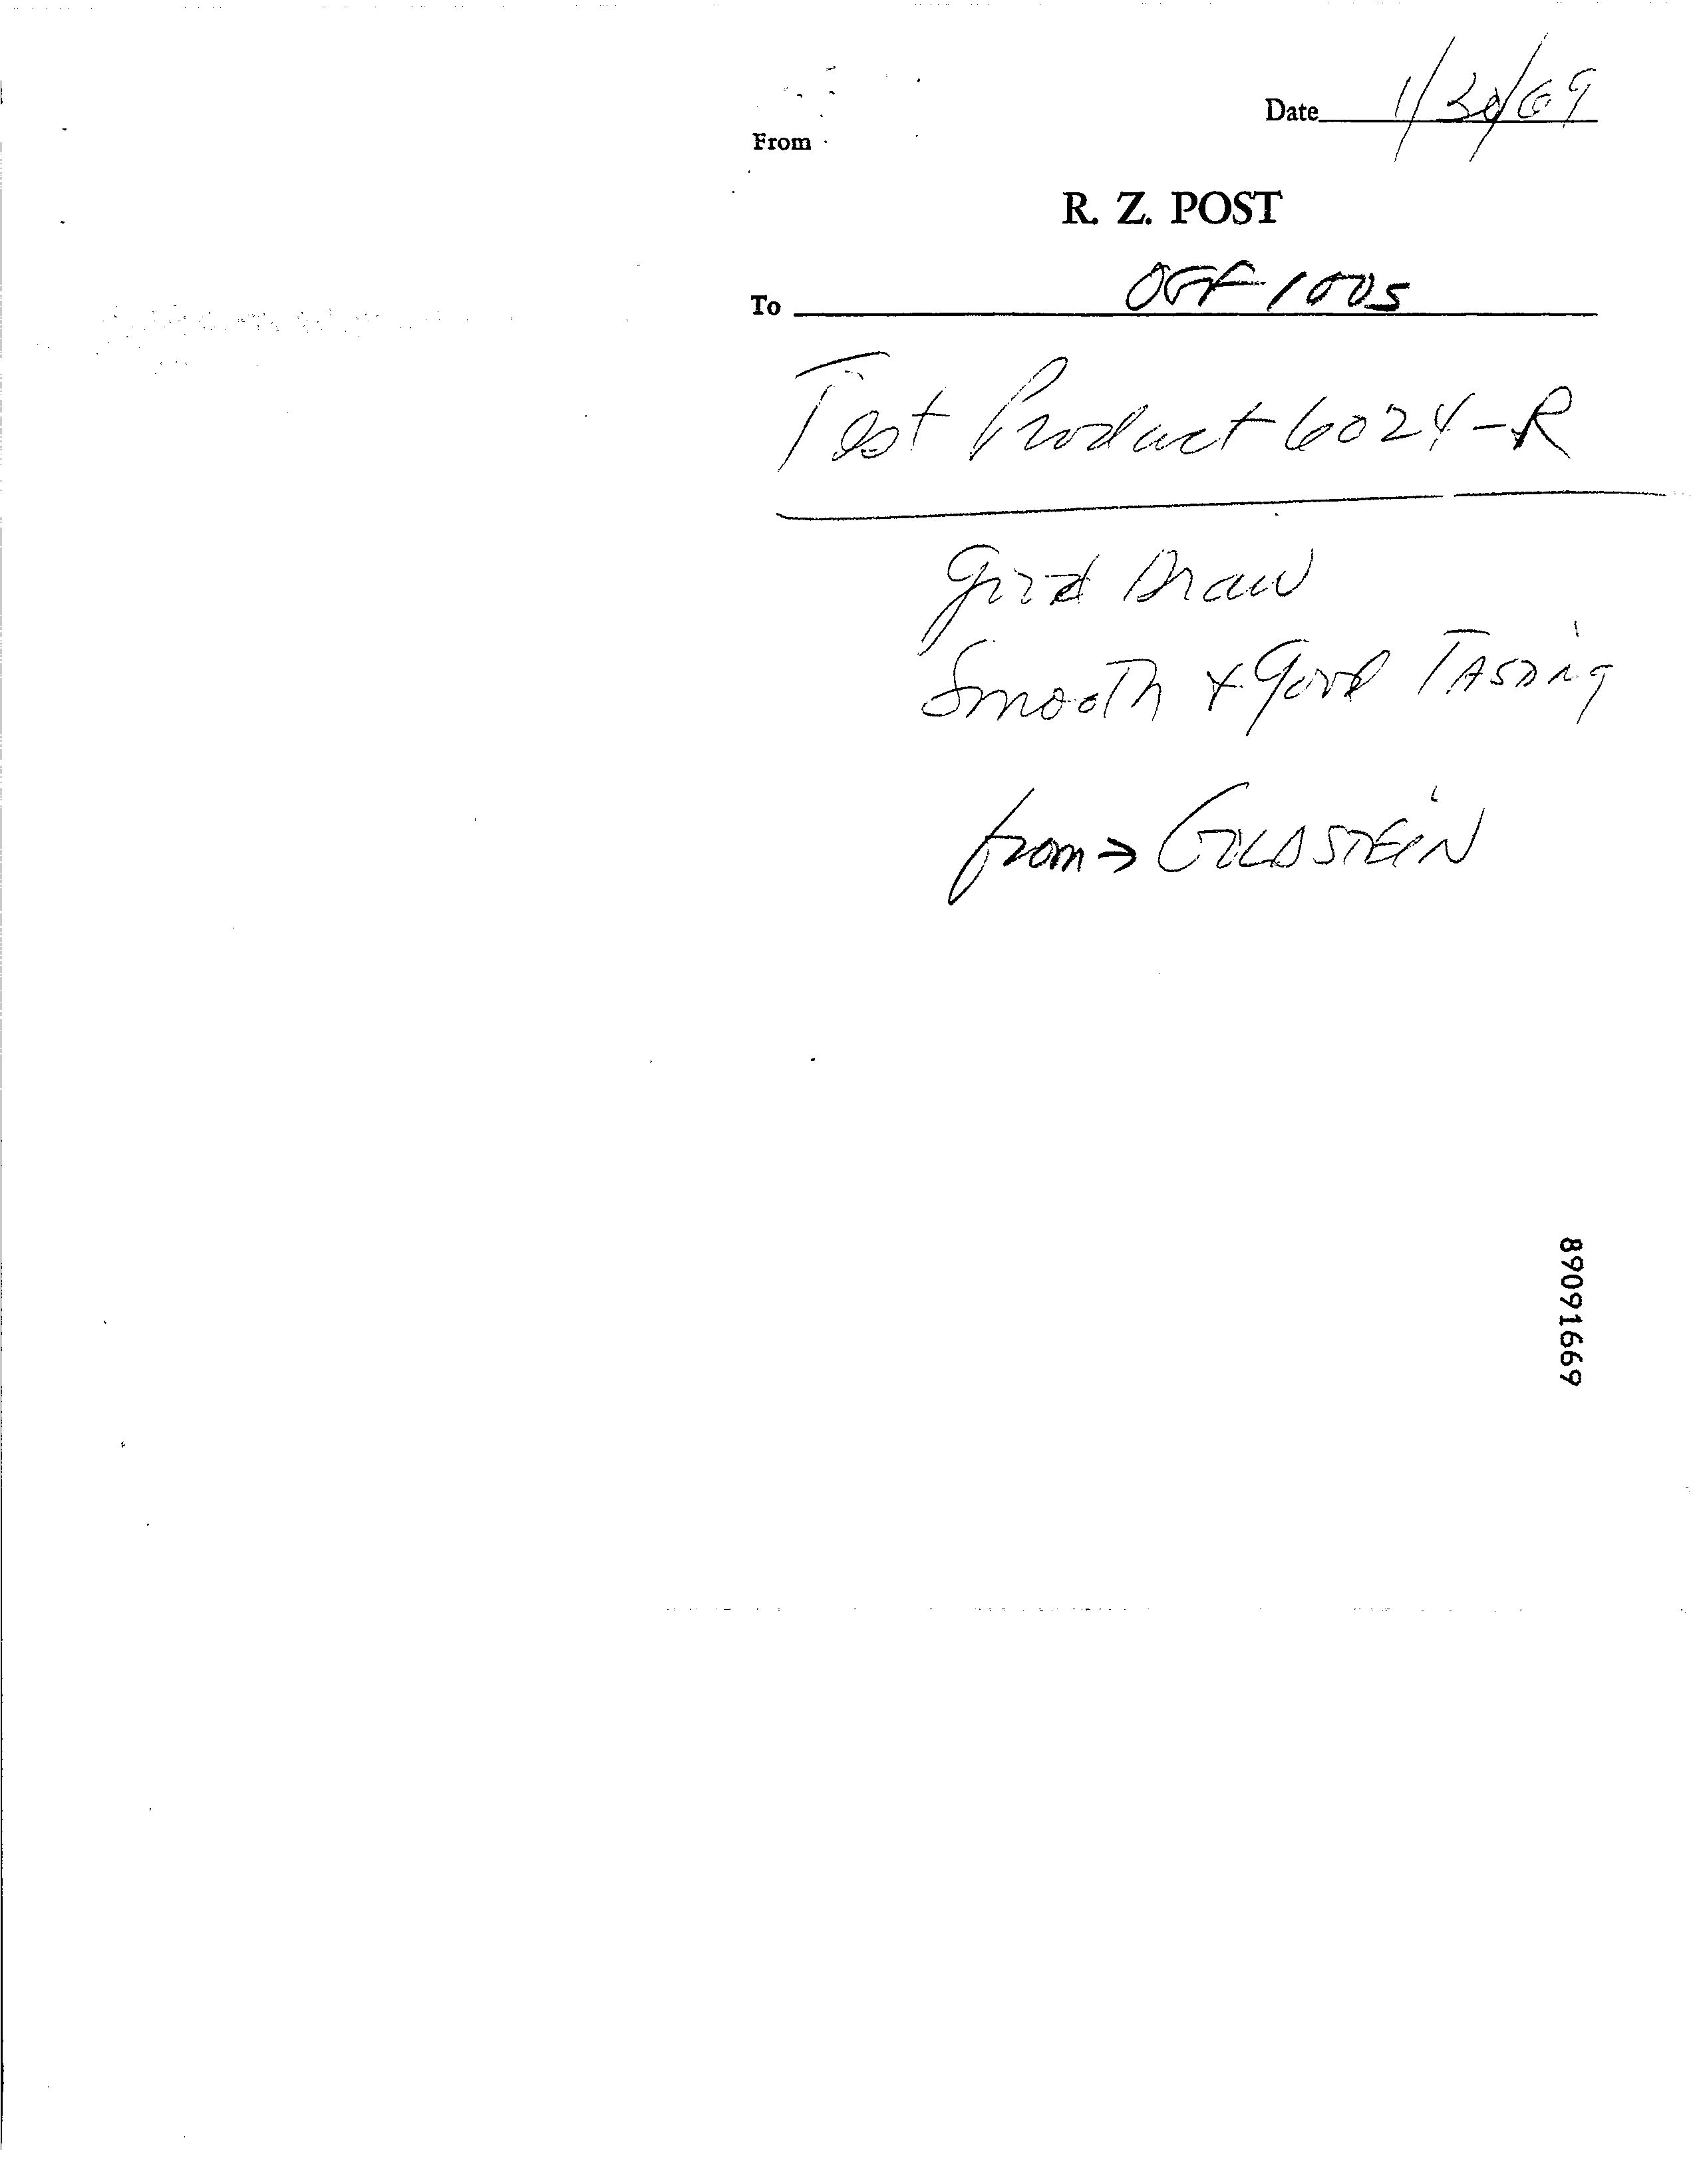 Date 1/30/69
From
R. Z. POST
To OFF 1005
Test Product 6024-R
Good Draw
Smooth + Good Tasting
from → GOLDSTEIN
89091669